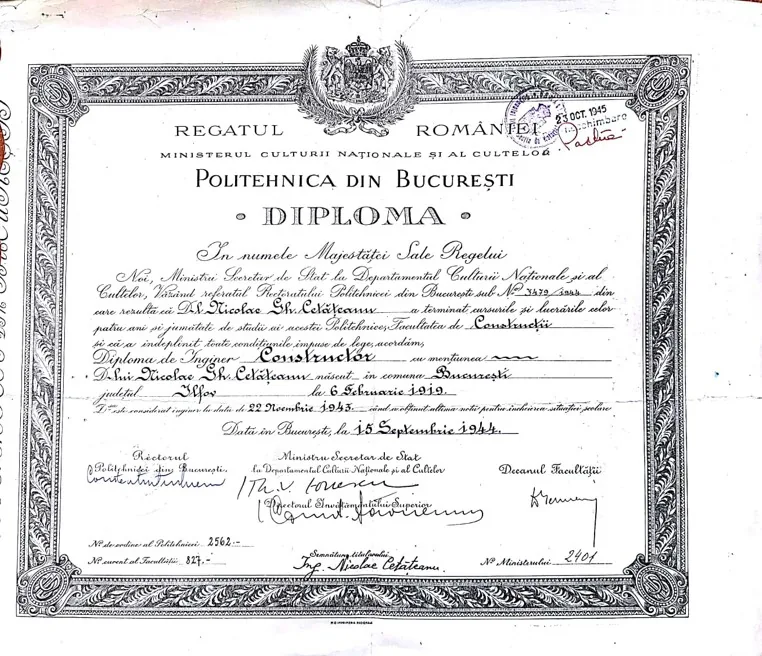 REGATUL ROMÂNIEI
23 OCT. 1945
MINISTERUL CULTURII NAȚIONALE ȘI AL CULTELOR
POLITEHNICA DIN BUCUREȘTI
• DIPLOMA •
În numele Majestăței Sale Regelui
Noi, Ministru Secretar de Stat la Departamentul Culturii Naționale și al
Cultelor, Văzând referatul Rectoratului Politehnicei din București sub No 3479/1944 din
care rezultă că D-l Nicolae Gh. Cetățeanu a terminat cursurile și lucrările celor
patru ani și jumătate de studii ai acestei Politehnice, Facultatea de Construcții
și că a îndeplinit toate condițiunile impuse de lege, acordăm,
Diploma de Inginer Constructor cu mențiunea
D-lui Nicolae Gh. Cetățeanu născut în comuna București
județul Ilfov la 6 Februarie 1919.
D-sa este considerat inginer la data de 22 Noembrie 1943. când a obținut ultima notă pentru încheierea situației școlare
Data în București, la 15 Septembrie 1944.
Rectorul Ministru Secretar de Stat
Politehnicei din București. la Departamentul Culturii Naționale și al Cultelor Decanul Facultății
Directorul Învățământului Superior
No de ordine al Politehnicei 2562.-
No curent al Facultății 827.-
Semnătura titularului
Ing. Nicolae Cetățeanu.
No Ministerului 2401